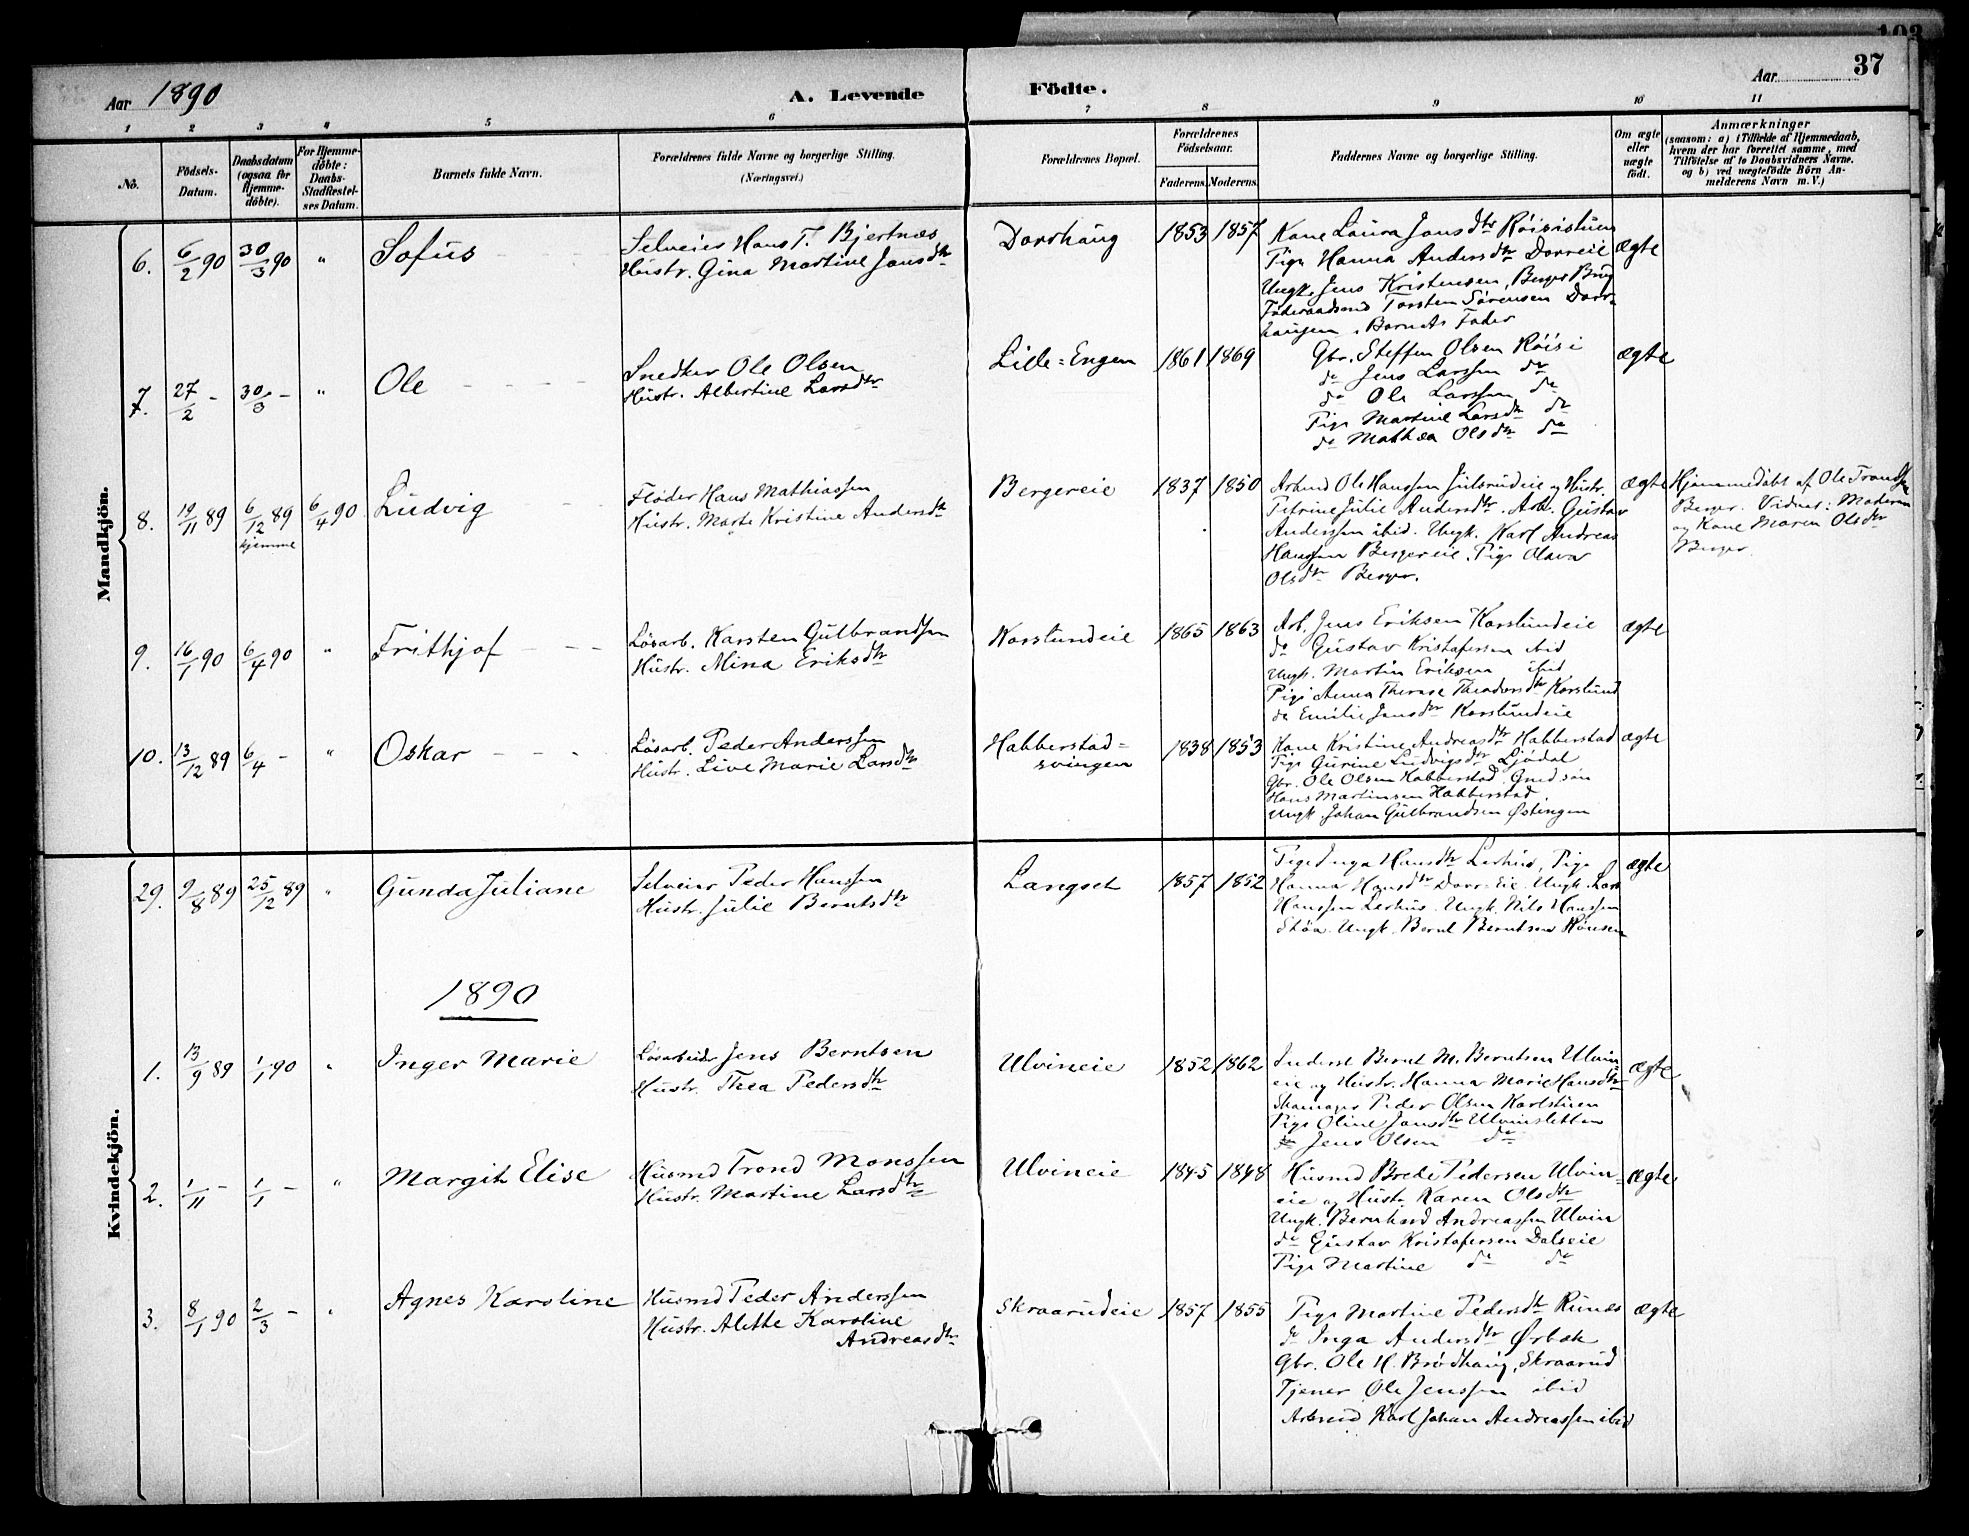 Aar 1890
A. Levende Födte.
Aar
37
1 2 3 4 5 6 7 8 9 10 11
No.
Födsels-Datum.
Daabsdatum (ogsaa for Hjemme-döbte).
For Hjemme-döbte: Daabs-Stadfæstel-ses Datum.
Barnets fulde Navn.
Forældrenes fulde Navne og borgerlige Stilling.
(Næringsvei.)
Forældrenes Bopæl.
Forældrenes Födselsaar.
Faderens. Moderens.
Faddernes Navne og borgerlige Stilling.
Om ægte eller uægte födt.
Anmærkninger
(saasom: a) i Tilfælde af Hjemmedaab,
hvem der har forrettet samme, med
Tilföielse af to Daabsvidners Navne.
og b) ved uægtefödte Börn An-
melderens Navn m. V.)
Mandkjön.
6. 6/2 90 30/3 90 " Sofus
Selveier Hans T. Bjertnæs
Hustr. Gina Martine Jansdtr
Dorrhaug 1853 1857
Kone Laura Jansdtr
Pige Hanna Andersdtr Dorreie
Ungk. Jens Kristensen, Berger Brug
Föderaadsmd Torsten Sörensen Dorr-
haugen, Barnets Fader
ægte
7. 27/2 - 30/3 - " Ole
Snedker Ole Olsen
Hustr. Albertine Larsdtr
Lille-Engen 1861 1869
Gbr. Steffen Olsen Röisi
do Jens Larssen do
do Ole Larssen do
Pige Martine Larsdtr do
do Mathea Olsdtr do
ægte
8. 19/11 89 6/12 89 hjemme 6/4 90 Ludvig
Flöder Hans Mathiassen
Hustr. Marte Kristine Andersdtr
Bergereie 1837 1850
Arbmd Ole Hanssen Julsrudeie og Hustr.
Petrine Julie Andersdtr. Arb. Gustav
Anderssen ibid. Ungk. Karl Andreas
Hanssen Bergereie. Pige Olava
Olsdtr Berger.
ægte
Hjemmedöbt af Ole
Berger. Vidner: Moderen
og Kone Maren Olsdtr
Berger.
9. 16/1 90 6/4 90 " Frithjof
Lösarb. Karsten Gulbrandsen
Hustr. Mina Eriksdtr
Korslundeie 1865 1863
Arb. Jens Eriksen Korslundeie
do Gustav Kristofersen ibid
Ungk. Martin Eriksen ibid
Pige Anna Therese Theodorsdtr Korslund
do Emilie Jensdtr Korslundeie
ægte
10. 13/12 89 6/4 - " Oskar
Lösarb. Peder Anderssen
Hustr. Live Marie Larsdtr
Habberstad-
svingen 1838 1853
Kone Kristine Andreasdtr Habberstad
Pige Gurine Ludvigsdtr Ljödal
Gbr. Ole Olsen Habberstad, Gmd.sön
Hans Martinsen Habberstad
Ungk. Johan Gulbrandsen Östengen
ægte
Kvindekjön.
29. 9/8 89 25/12 89 " Gunda Juliane
Selveier Peder Hanssen
Hustr. Julie Berntsdtr
Langset 1857 1852
Pige Inga Hansdtr Lerhus, Pige
Hanna Hansdtr Dorr-Eie. Ungk. Lars
Hanssen Lerhus. Ungk. Nils Hanssen
Stöa. Ungk. Bernt Berntsen
ægte
1890
1. 13/9 89 1/1 90 " Inger Marie
Lösarbeider Jens Berntsen
Hustr. Thea Pedersdtr
Ulvineie 1852 1862
Inderst Bernt M. Berntsen Ulvin-
eie og Hustr. Hanna Marie Hansdtr
Skomager Peder Olsen Karlstuen
Pige Oline Jansdtr Ulvinsletten
Jens Olsen do
ægte
2. 1/11 - 1/1 - " Margit Elise
Husmd Trond Monssen
Hustr. Martine Larsdtr
Ulvineie 1845 1848
Husmd Brede Pedersen Ulvin-
eie og Hustr Karen Olsdtr
Ungk. Bernhard Andreassen Ulvin
do Gustav Kristofersen Dalseie
Pige Martine do do
ægte
3. 8/1 90 2/3 - " Agnes Karoline
Husmd Peder Anderssen
Hustr. Alette Karoline
Andreasdtr
Skraarudeie 1857 1855
Pige Martine Pedersdtr Runes
do Inga Andersdtr Örbæk
Gbr. Ole H. Brödhaug, Skraarud
Tjener Ole Jenssen ibid
Arbmd Karl Johan Andreassen ibid
ægte